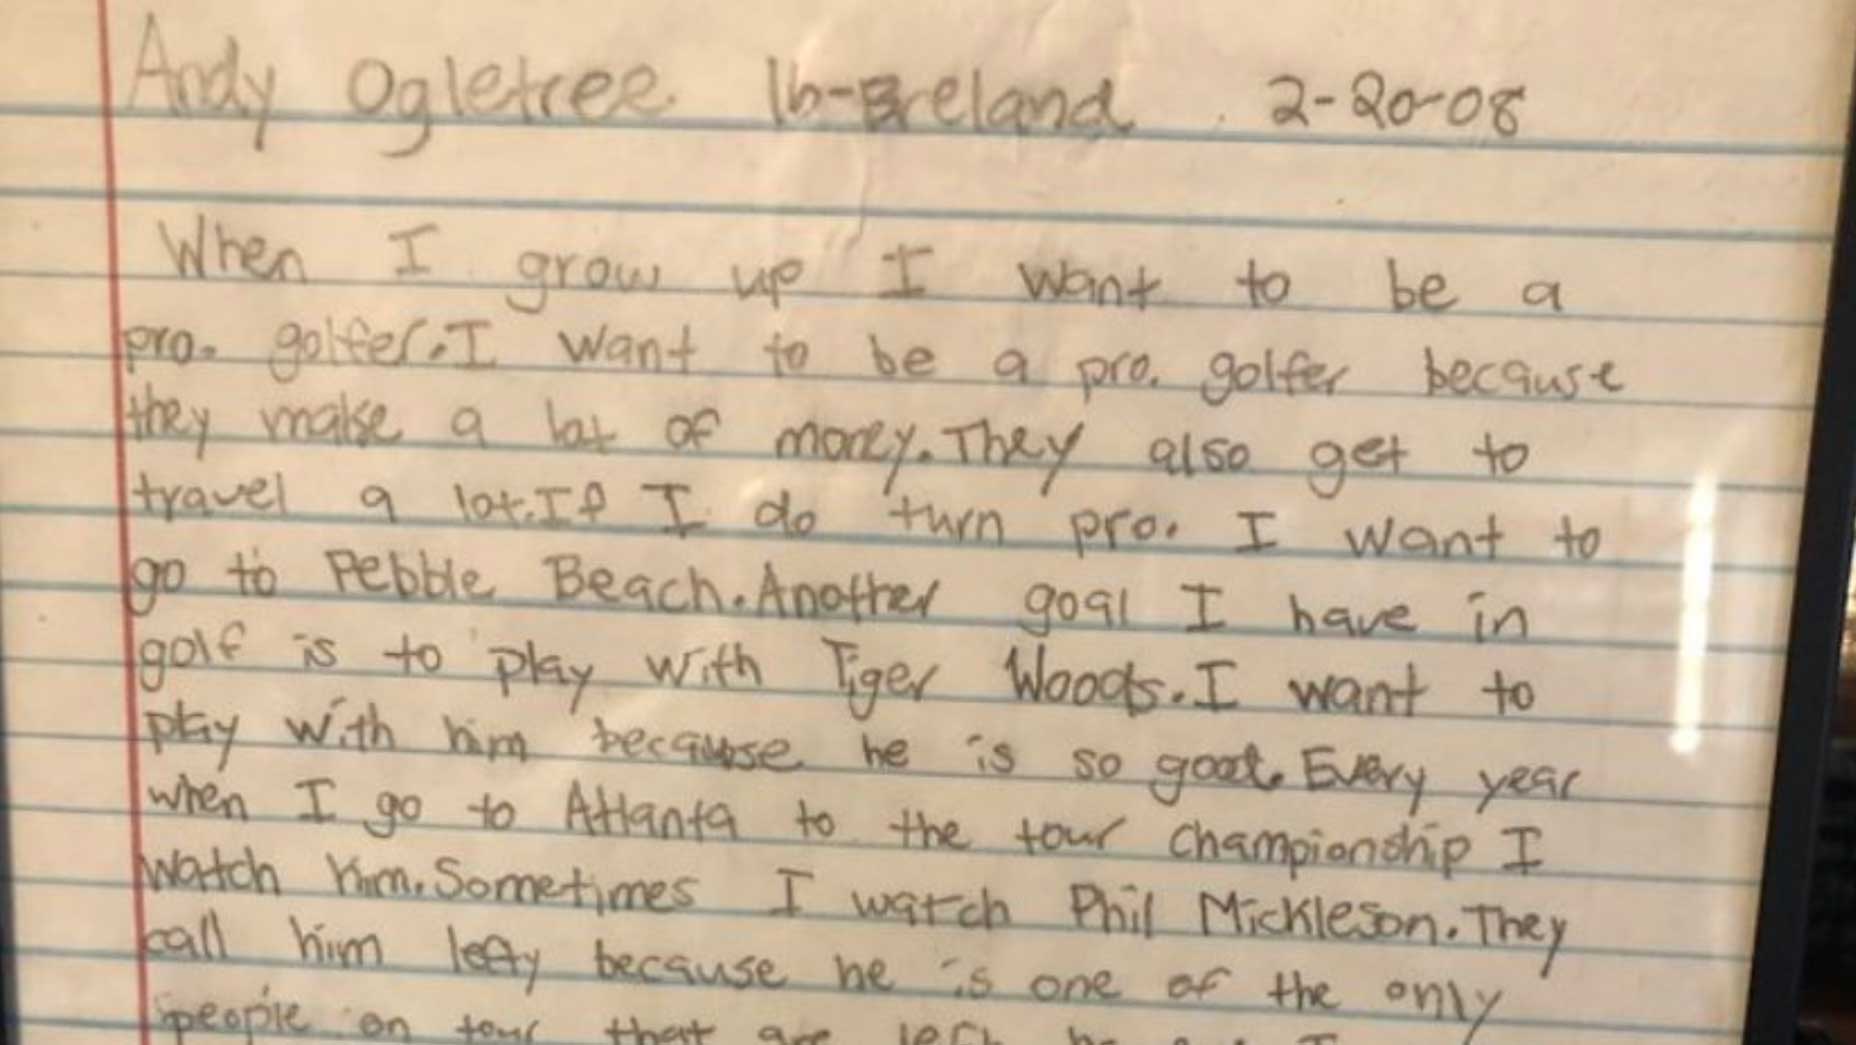 Andy Ogletree 16-Breland 2-20-08
When I grow up I want to be a
pro. golfer. I want to be a pro. golfer because
they make a lot of money. They also get to
travel a lot. If I do turn pro. I want to
go to Pebble Beach. Another goal I have in
golf is to play with Tiger Woods. I want to
play with him because he is so good. Every year
when I go to Atlanta to the tour championship I
watch him. Sometimes I watch Phil Mickleson. They
call him lefty because he is one of the only
people on tour that are left